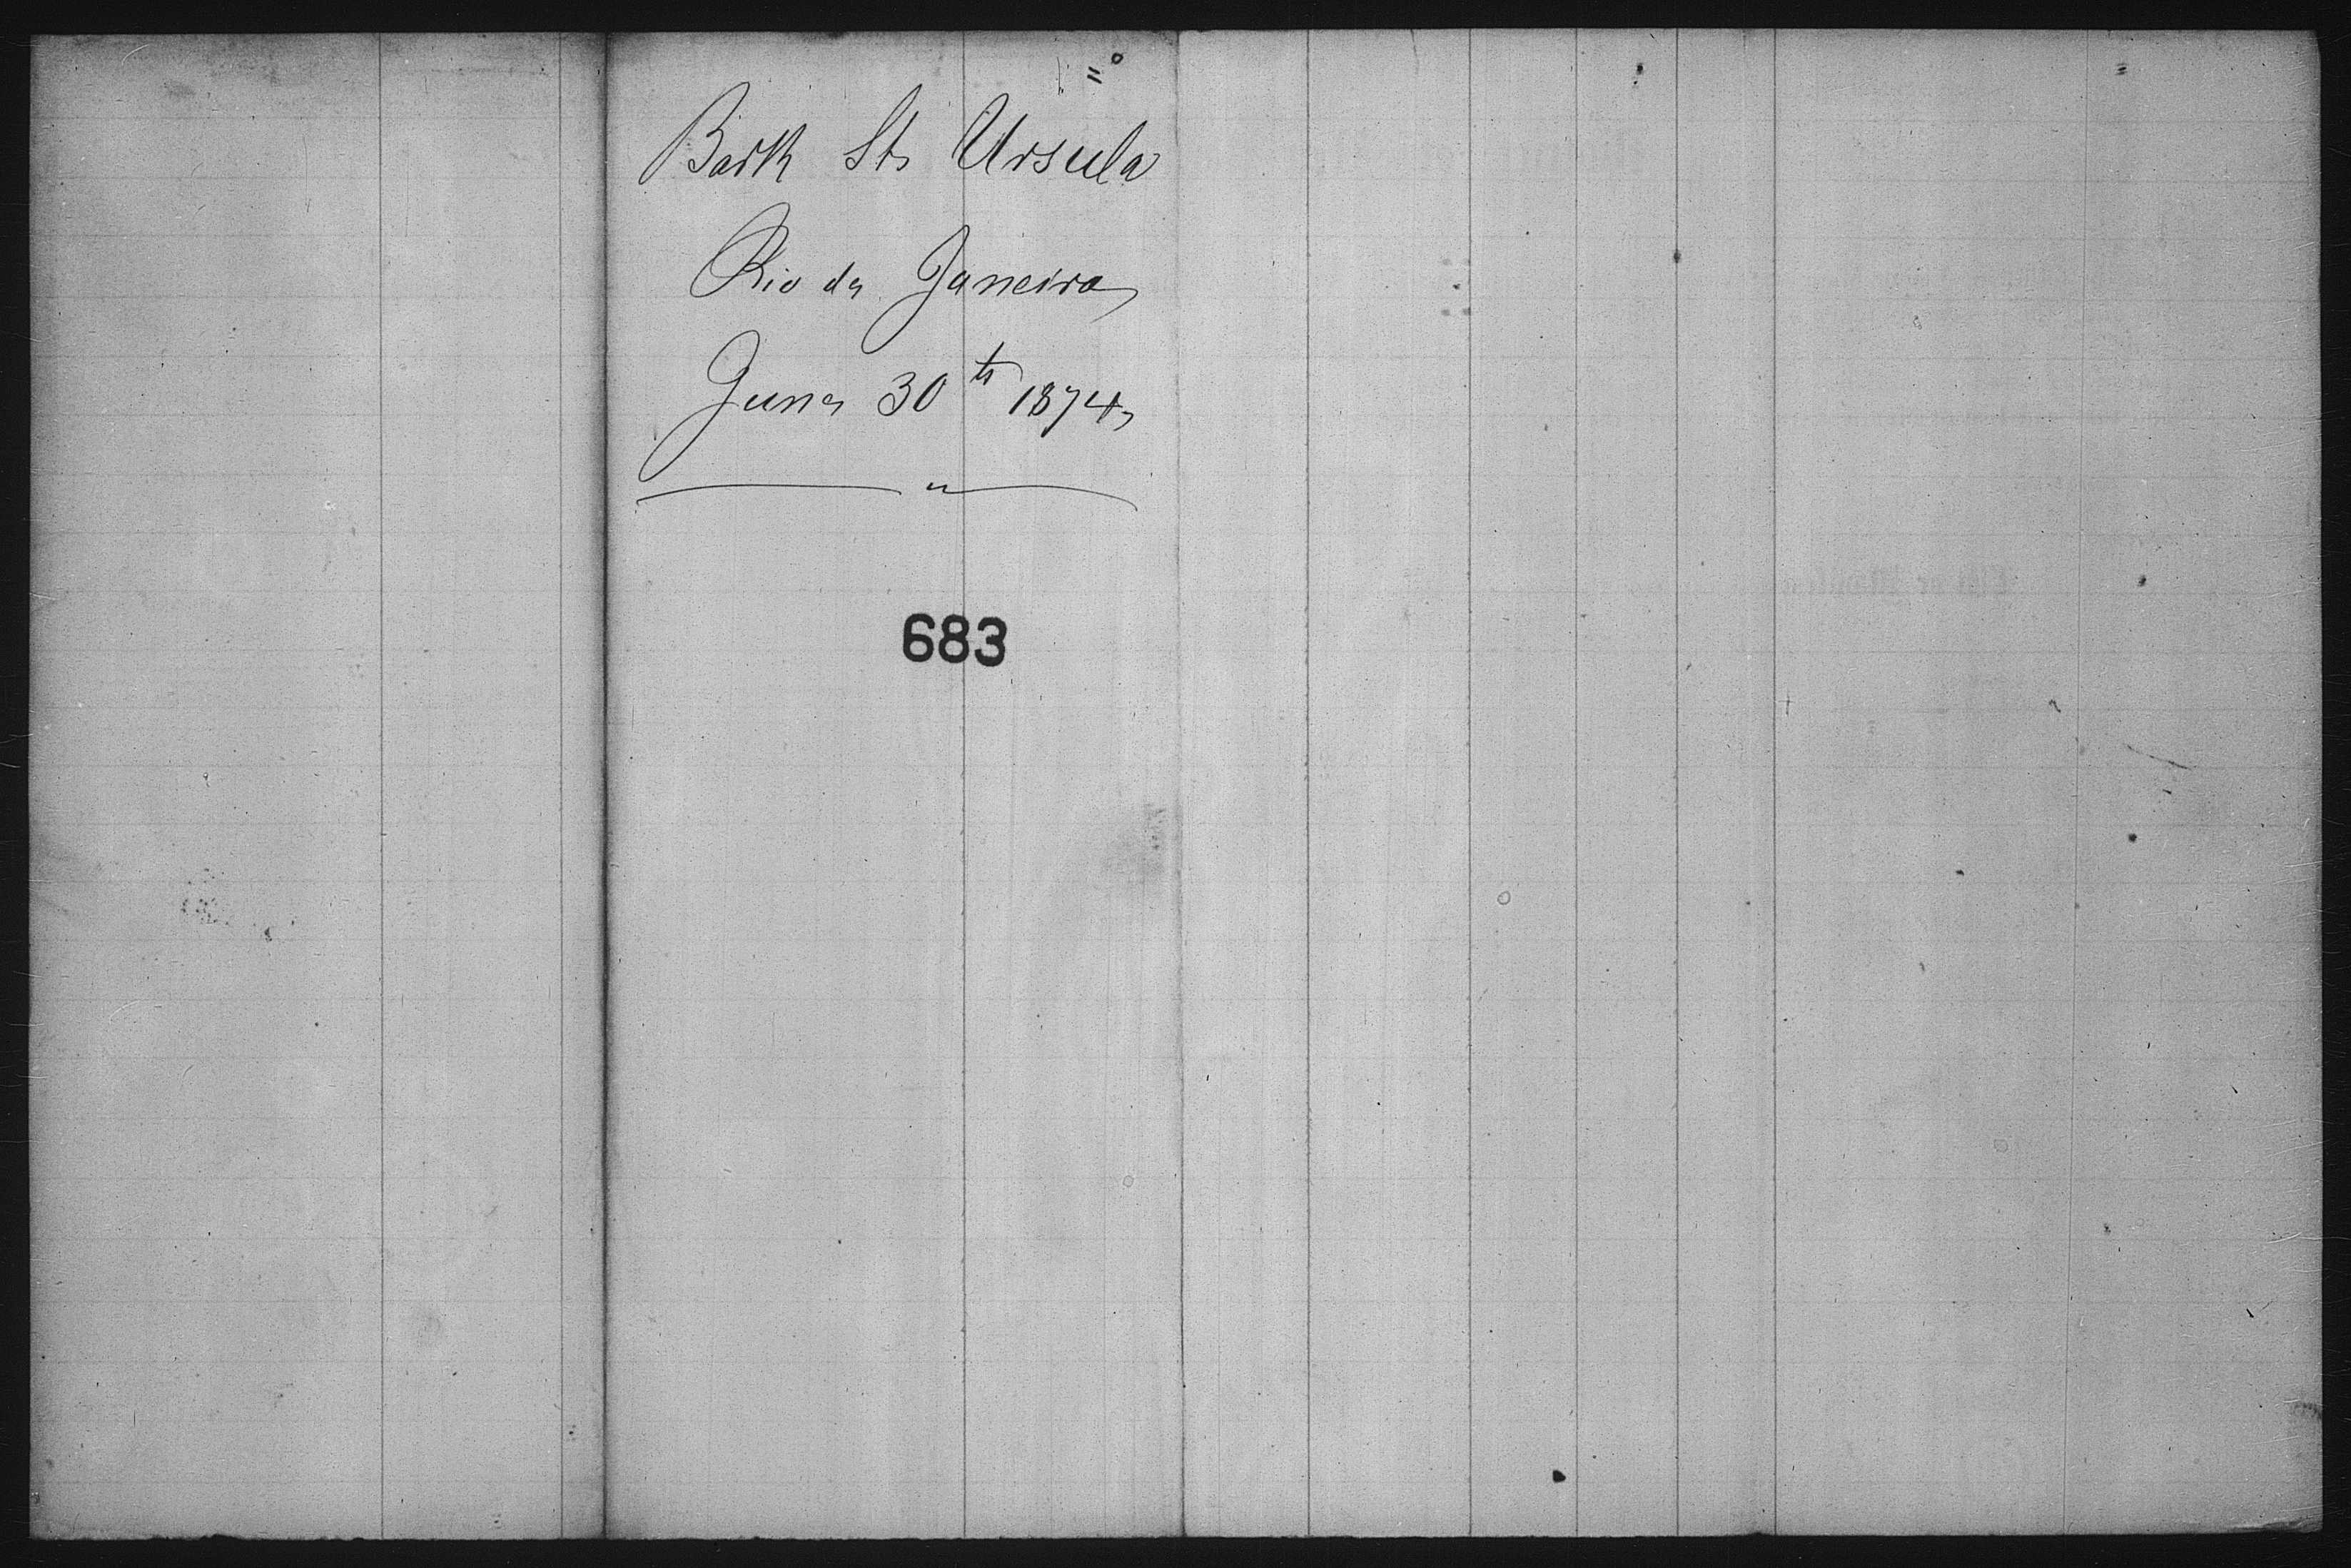 Bark St. Ursula
Rio de Janeiro
June 30th 1874
683